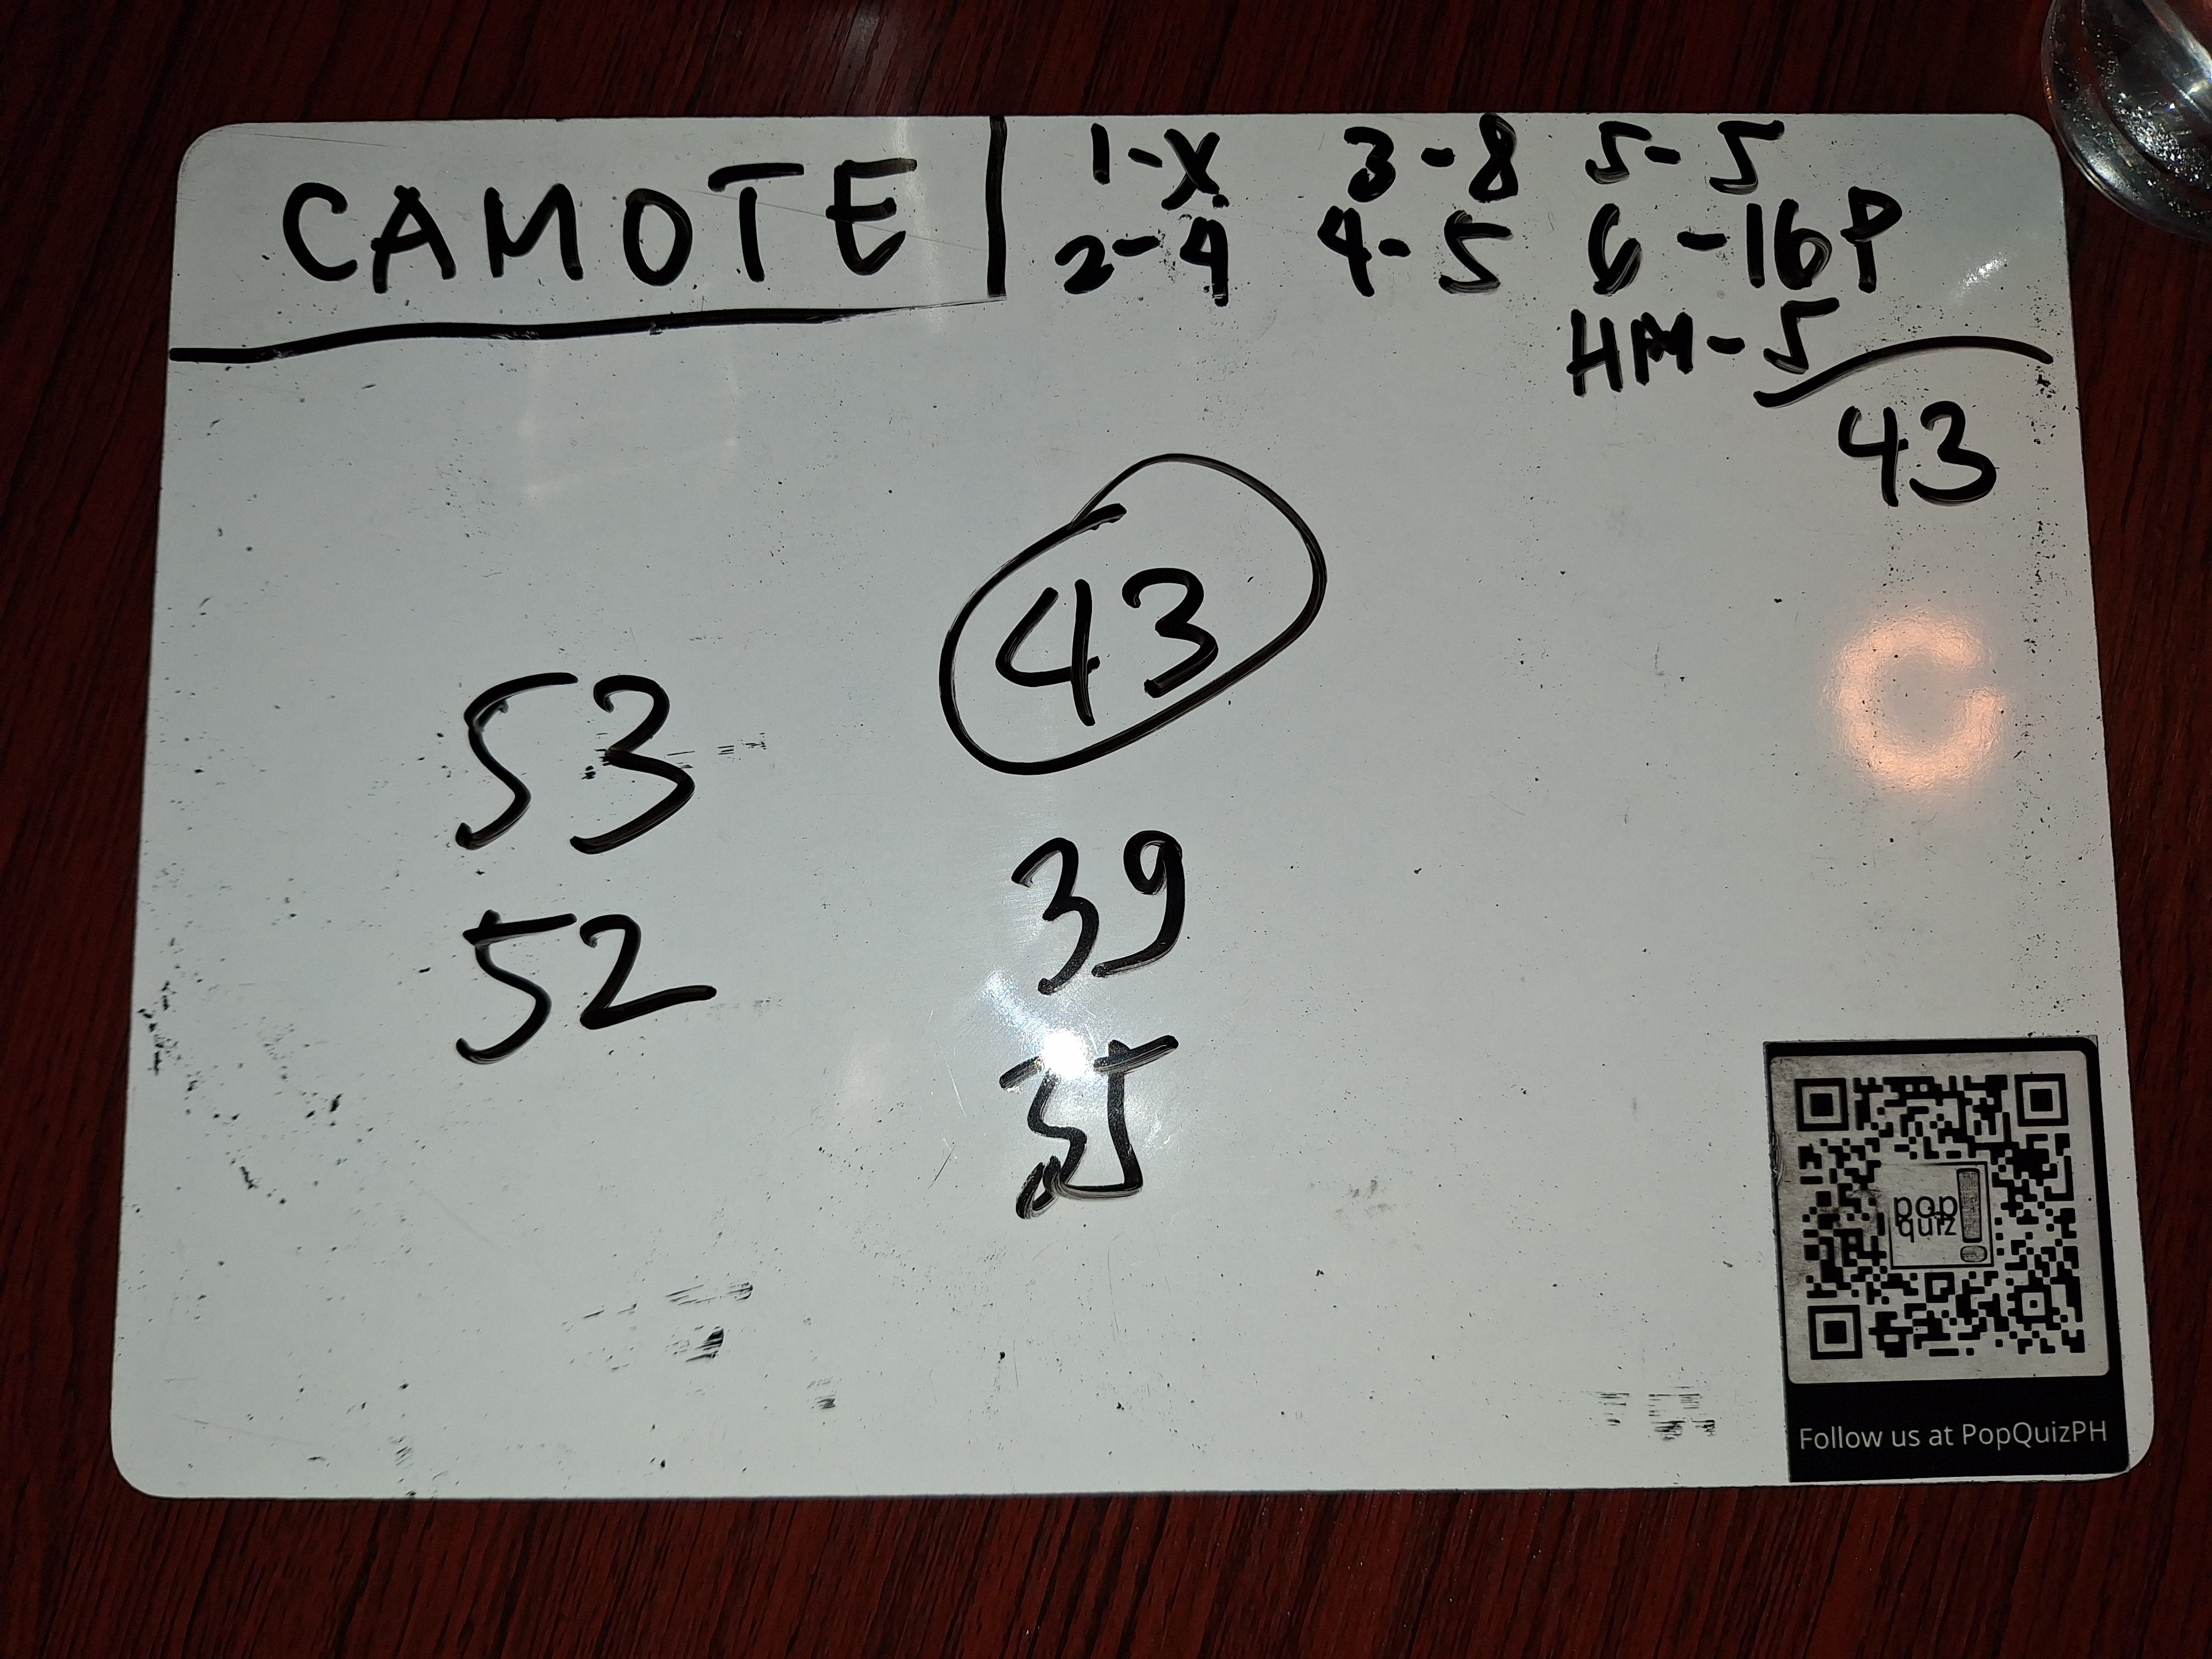 CAMOTE
1-X 3-8 5-5
2-4 4-5 6-16P
HM-5
43
43
53
39
52
35
pop
quiz!
Follow us at PopQuizPH